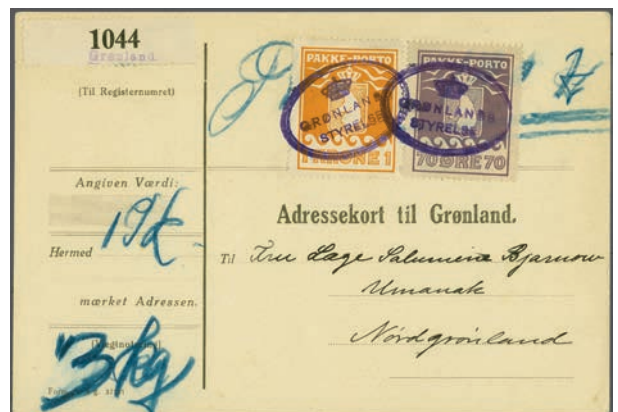 1044
Grønland
(Til Registernumret)
Angiven Værdi:
Hermed
mærket Adressen.
3 kg
PAKKE-PORTO
1 KRONE 1
GRØNLANDS
STYRELSE
PAKKE-PORTO
70 ØRE 70
GRØNLANDS
STYRELSE
Adressekort til Grønland.
Til Fru Lage Salumine Bjarnow
Umanak
Nordgrönland